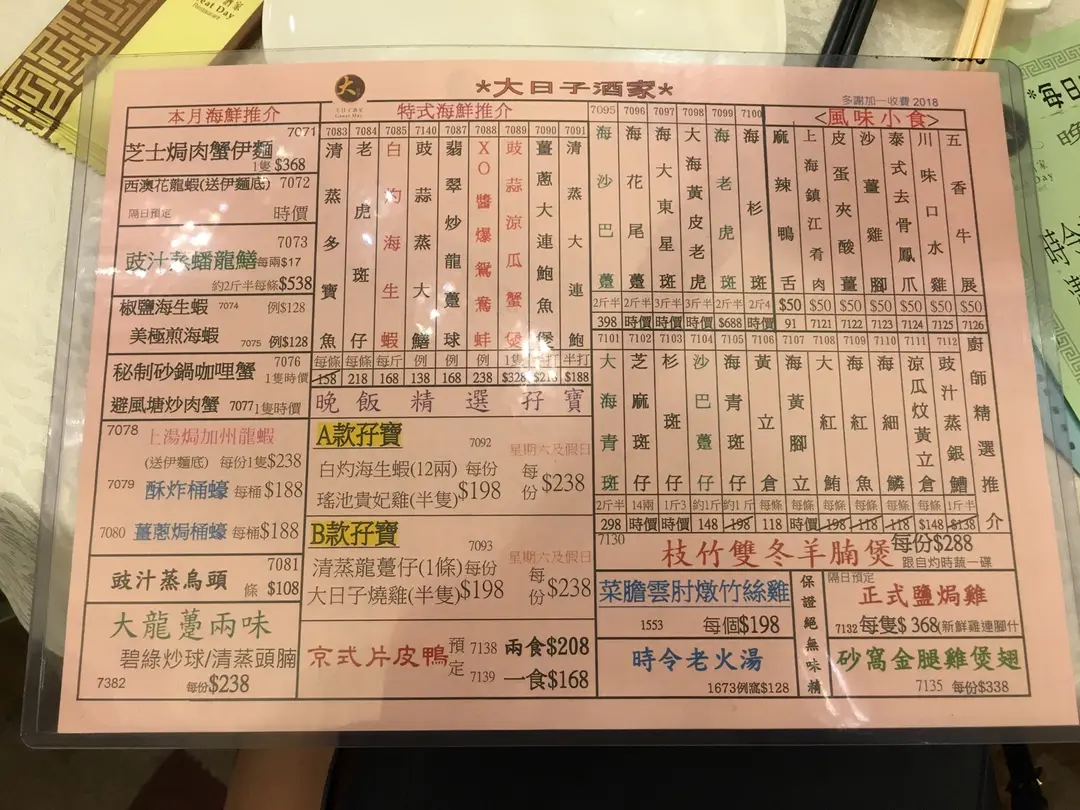 酒家
Great Day
Restaurant
*大日子酒家*
大日子酒家
Great Day
多謝加一收費 2018
本月海鮮推介
7071
芝士焗肉蟹伊麵
1隻$368
西澳花龍蝦(送伊麵底) 7072
隔日預定 時價
7073
豉汁蒸蟠龍鱔每兩$17
約2斤半每條$538
椒鹽海生蝦 7074 例$128
美極煎海蝦 7075 例$128
7076
秘制砂鍋咖哩蟹 1隻時價
避風塘炒肉蟹 7077 1隻時價
7078
上湯焗加州龍蝦
(送伊麵底) 每份1隻$238
7079 酥炸桶蠔 每桶$188
7080 薑蔥焗桶蠔 每桶$188
7081
豉汁蒸烏頭 條 $108
大龍躉兩味
碧綠炒球/清蒸頭腩
7382 每份$238
特式海鮮推介
7083 清蒸多寶魚 每條 158
7084 老虎斑仔 每條 218
7085 白灼海生蝦 每斤 168
7140 豉蒜蒸大鱔 例 138
7087 翡翠炒龍躉球 例 168
7088 XO醬爆鴛鴦蚌 例 238
7089 豉蒜涼瓜蟹煲 1隻 $328
7090 薑蔥大連鮑魚煲 $218
7091 清蒸大連鮑 半打 $188
晚飯精選孖寶
A款孖寶
7092
星期六及假日
白灼海生蝦(12兩) 每份
瑤池貴妃雞(半隻) $198
每份 $238
B款孖寶
7093
星期六及假日
清蒸龍躉仔(1條) 每份
大日子燒雞(半隻) $198
每份 $238
京式片皮鴨 預定
7138 兩食$208
7139 一食$168
7095 海沙巴躉 2斤半 398
7096 海花尾躉 2斤半 時價
7097 海大東星斑 3斤半 時價
7098 大海黃皮老虎 3斤半 時價
7099 海老虎斑 2斤半 $688
7100 海杉斑 2斤4 時價
<風味小食>
麻辣鴨舌 $50 91
上海鎮江肴肉 $50 7121
皮蛋夾酸薑 $50 7122
沙薑雞腳 $50 7123
泰式去骨鳳爪 $50 7124
川味口水雞 $50 7125
五香牛展 $50 7126
7101 大海青斑 2斤半 298
7102 芝麻斑仔 14兩 時價
7103 杉斑仔 1斤3 時價
7104 沙巴躉仔 約1斤 148
7105 海青斑仔 約1斤 198
7106 黃立倉 每條 118
7107 海黃腳立 每條 時價
7108 大紅鮪 每條 198
7109 海紅魚 每條 118
7110 海細鱗 每條 118
7111 涼瓜炆黃立倉 每條 $148
7112 豉汁蒸銀鱈 1斤半 $138
廚師精選推介
7130
枝竹雙冬羊腩煲 每份$288
跟自灼時蔬一碟
菜膽雲肘燉竹絲雞
1553 每個$198
時令老火湯
1673例窩$128
保證絕無味精
隔日預定
正式鹽焗雞
7132 每隻$ 368(新鮮雞連腳什
砂窩金腿雞煲翅
7135 每份$338
*每日